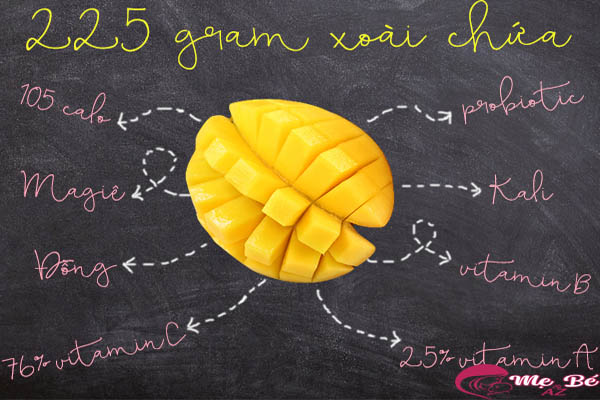 225 gram xoài chứa
105 calo
probiotic
Magiê
Kali
Đồng
vitamin B
76% vitamin C
25% vitamin A
Mẹ Bé
AZ